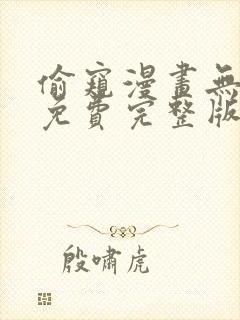 偷窺漫畫無
免費完整版
殷嘯虎